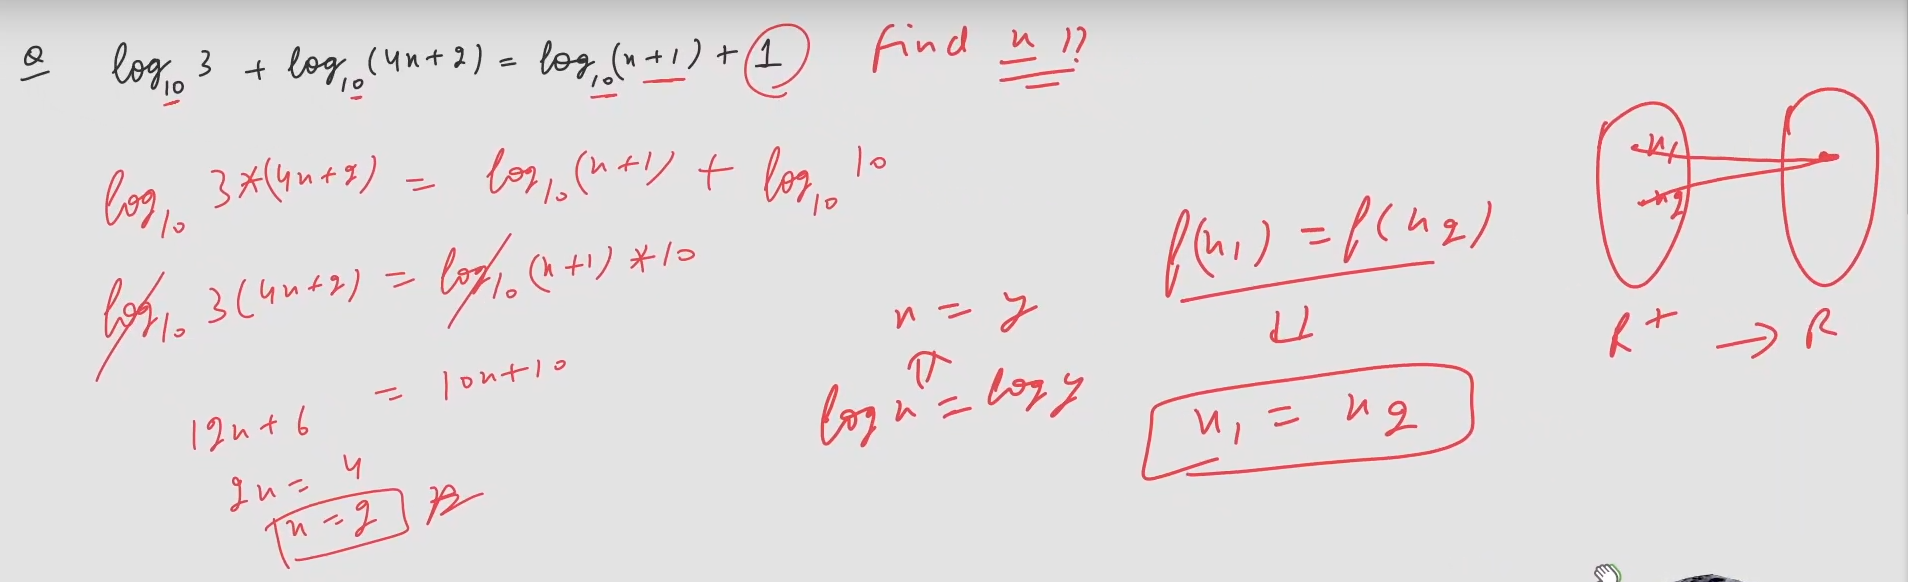 Q log₁₀ 3 + log₁₀ (4x+2) = log₁₀ (x+1) + 1 find x ??
log₁₀ 3*(4x+2) = log₁₀ (x+1) + log₁₀ 10
log₁₀ 3(4x+2) = log₁₀ (x+1) *10
12x+6 = 10x+10
2x = 4
x = 2
x = y
⇑
log x = log y
f(x₁) = f(x₂)
⇓
x₁ = x₂
x₁
x₂
R⁺ → R